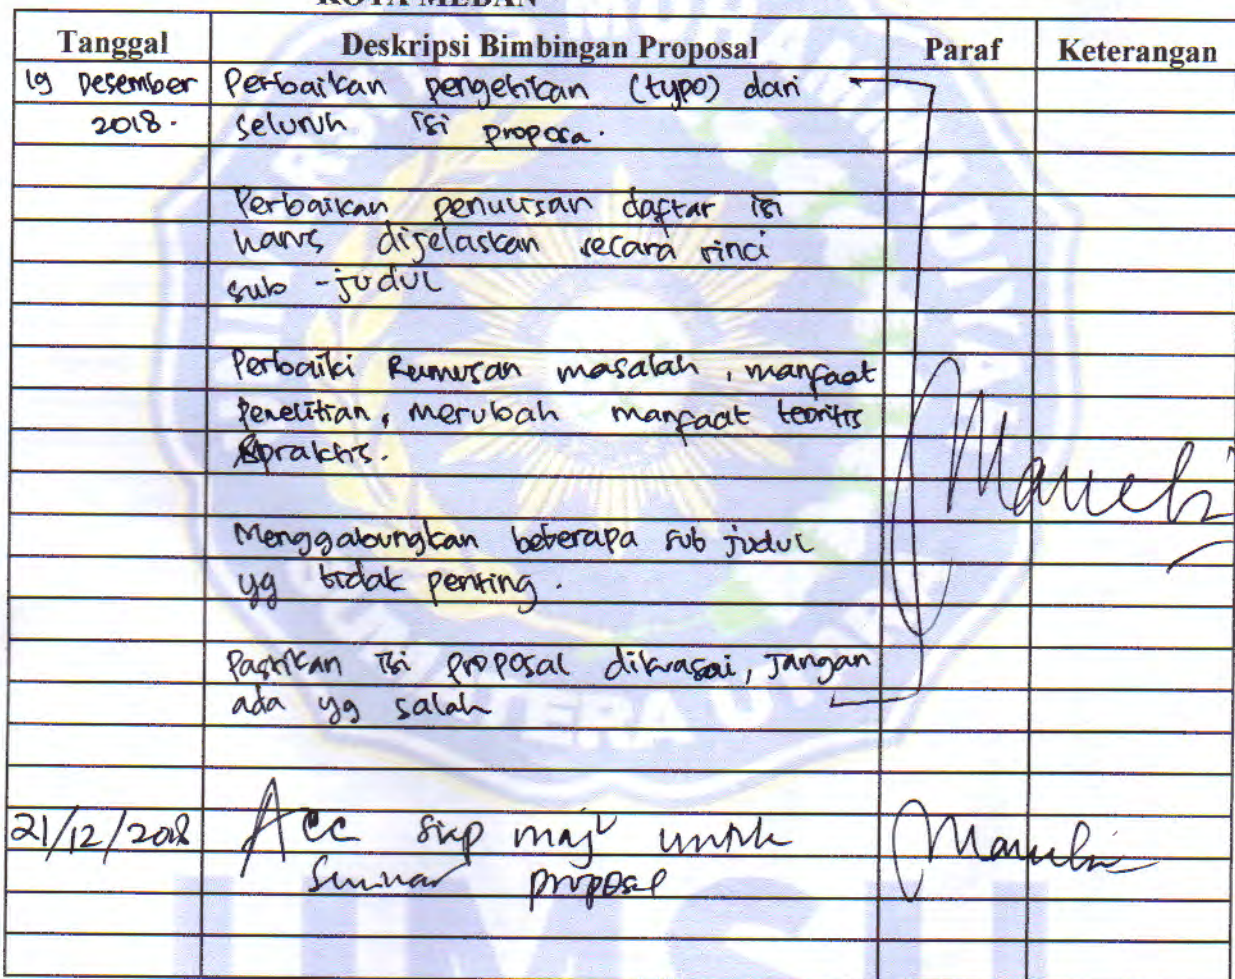 KOTA MEDAN
Tanggal Deskripsi Bimbingan Proposal Paraf Keterangan
19 Desember Perbaikan pengetikan (typo) dari
2018. seluruh isi proposa.
Perbaikan penulisan daftar isi
harus dijelaskan secara rinci
sub - judul
Perbaiki Rumusan masalah, manfaat
penelitian, merubah manfaat teoritis
&praktis.
Menggabungkan beberapa sub judul
yg tidak penting.
Pastikan isi proposal dikuasai, Jangan
ada yg salah
21/12/2018 Acc siap maju untuk
Seminar proposal
UMSU